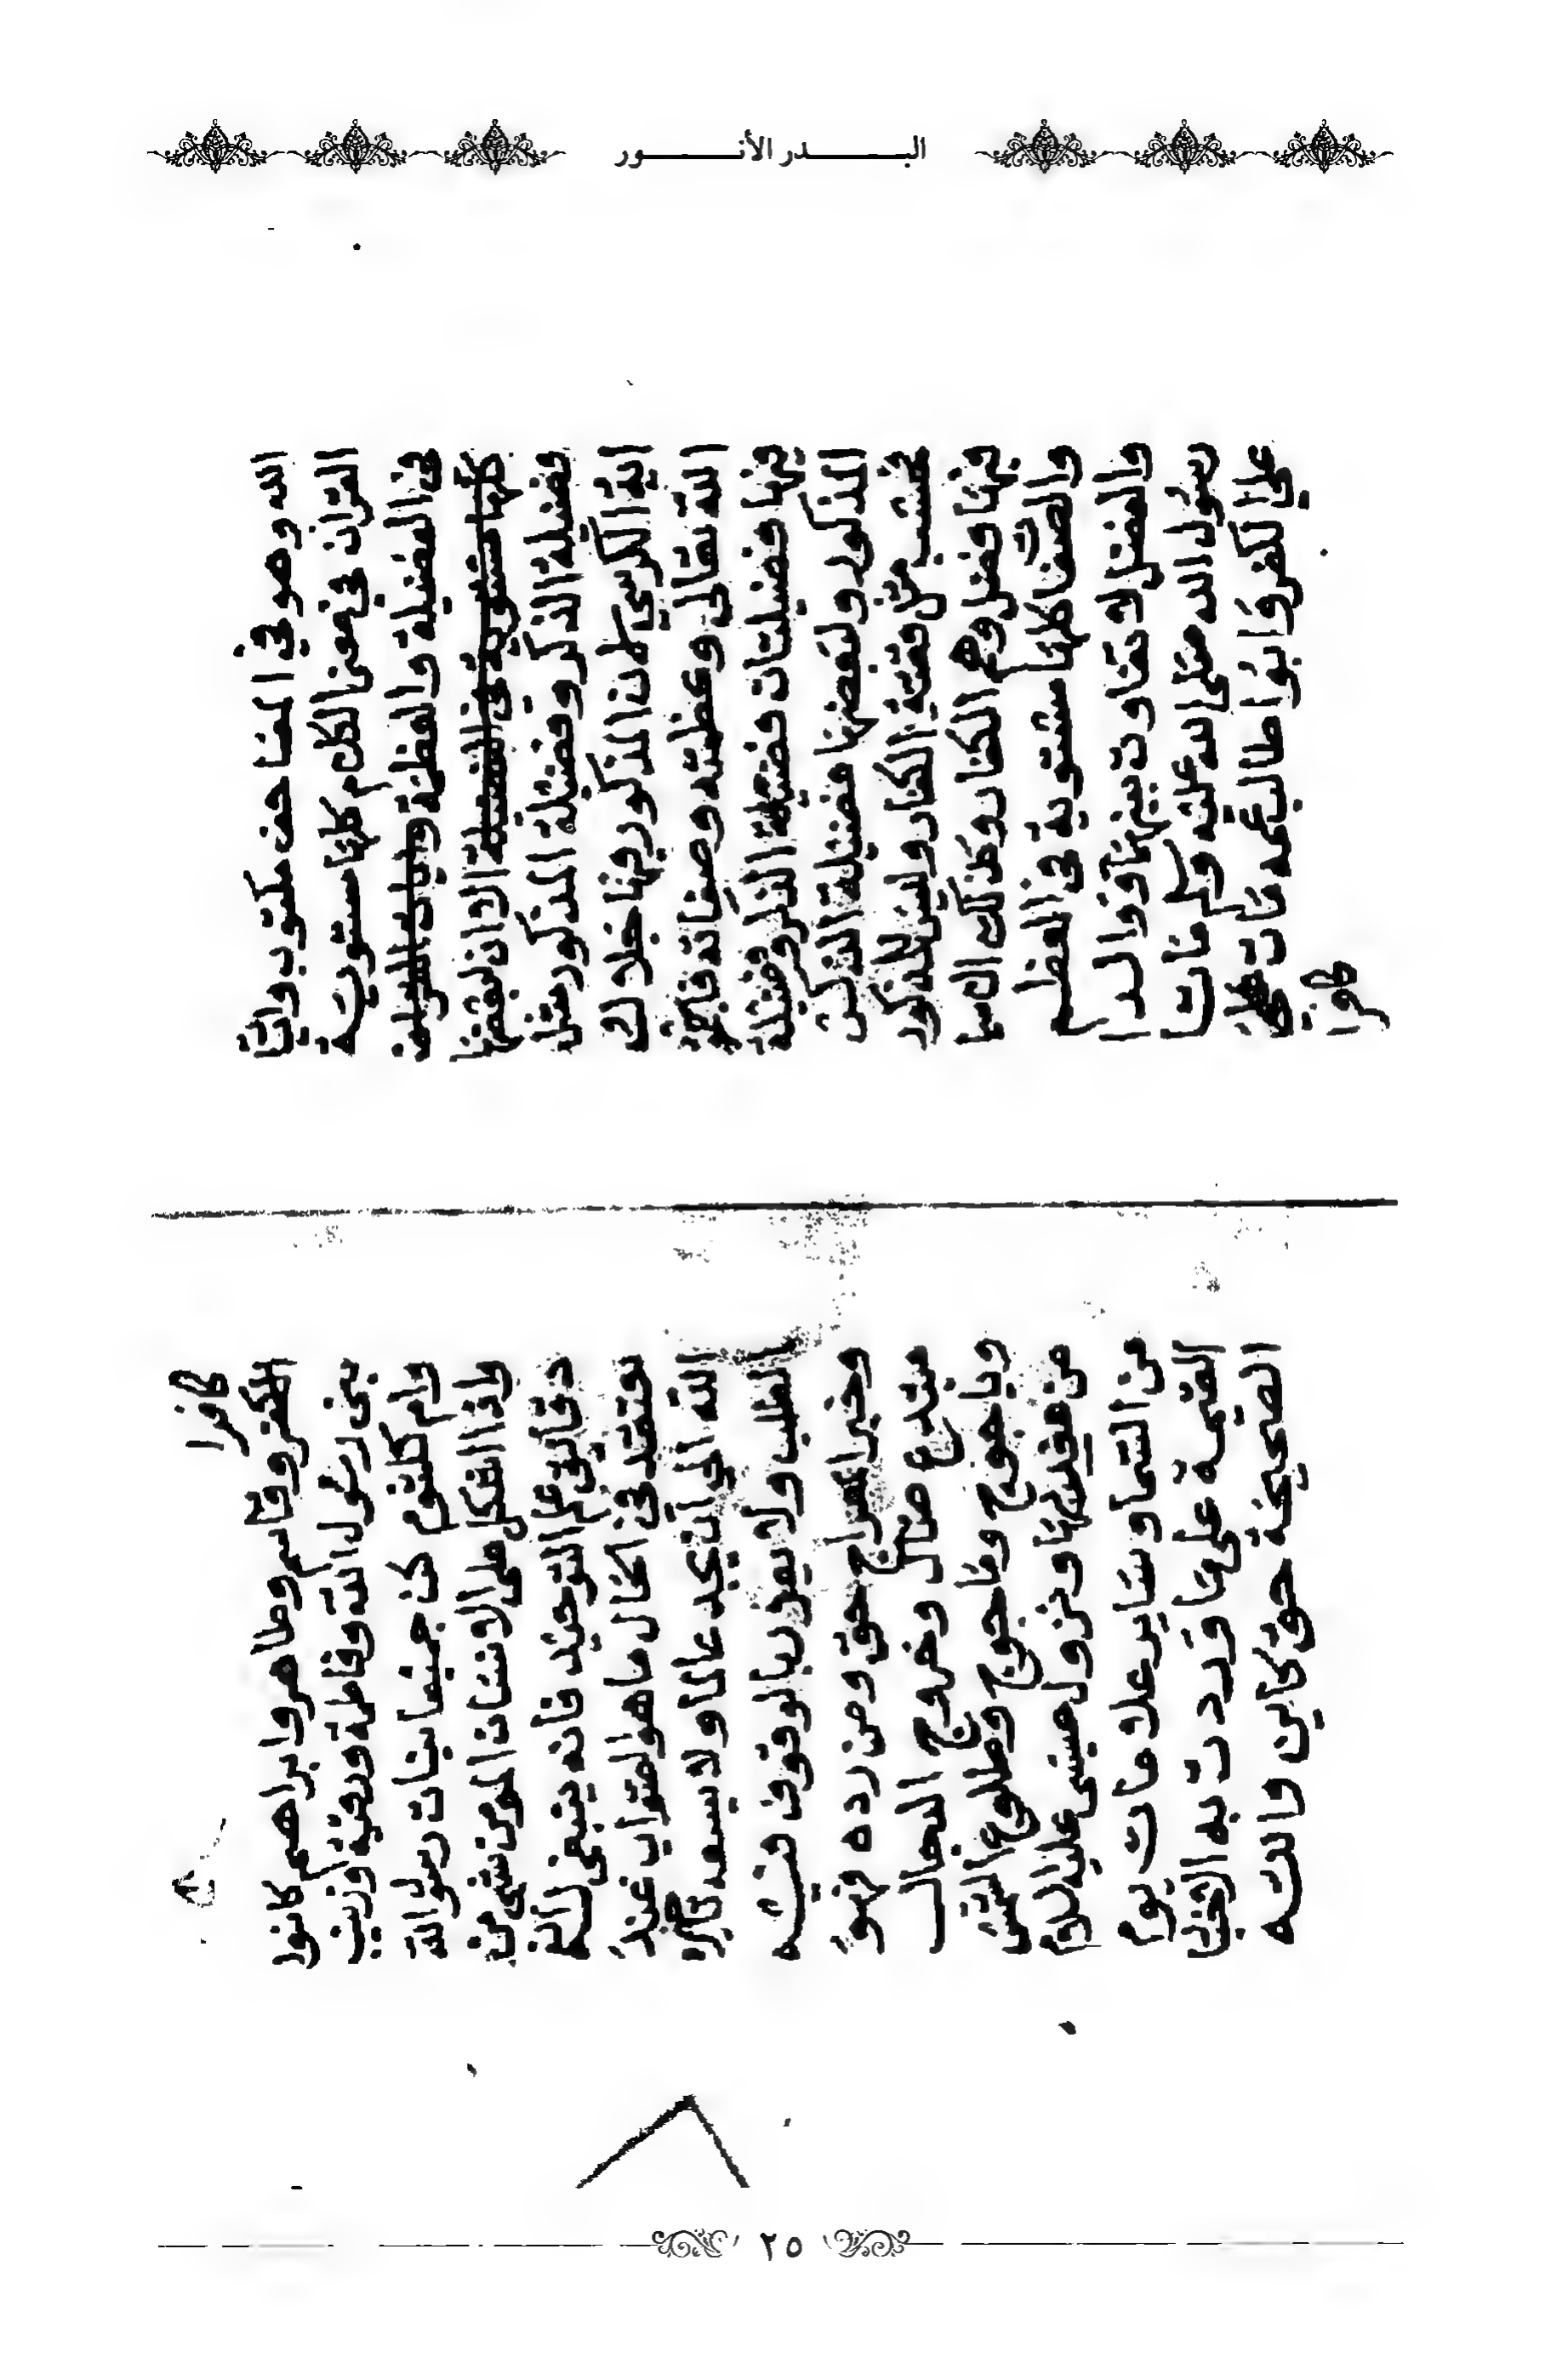 البدر الأنور
الله وهو في المصاحف مكتوب وايات
القران في معنى الكلام كلها مستوية
في الفضيلة والعظمة وايات القران
كلها مستوية في الفضيلة الا ان لبعضها
فضيلة الذكر وفضيلة المذكور مثل
اية الكرسي لان المذكور فيها جلال
الله تعالى وعظمته وصفاته فاجتمع
فيها فضيلتان فضيلة الذكر وفضيلة
المذكور ولبعضها فضيلة الذكر
فحسب مثل قصة الكفار وليس للمذكور
فيها فضل وهم الكفار وكذلك الاسما
والصفات كلها مستوية في العظم
والفضل لا تفاوت بينها ووالدا
رسول الله صلى الله عليه وسلم ماتا
على الكفر وابوا طالب عمه مات
كافرا
كافرا
الكفر وقاسم وطاهر وابراهيم كانوا
بني رسول الله وفاطمة ورقية وزينب
وام كلثوم كن جميعا بنات رسول الله
واذا اشكل على الانسان المومن شي من
دقائق علم التوحيد فانه ينبغي له ان
يعتقد في الحال ما هو الصواب عند
الله الى ان يجد عالما ولا يسعه تاخير
الطلب ولا يعذر بالوقوف فيه
وخبر المعراج حق ومن رده فهو
مبتدع ضال وخروج الدجال
وياجوج وماجوج وطلوع الشمس
من مغربها ونزول عيسى عليه السلام
من السماء وساير علامات يوم
القيمة على ما وردت به الاخبار
الصحيحة حق كاين والله
٢٥